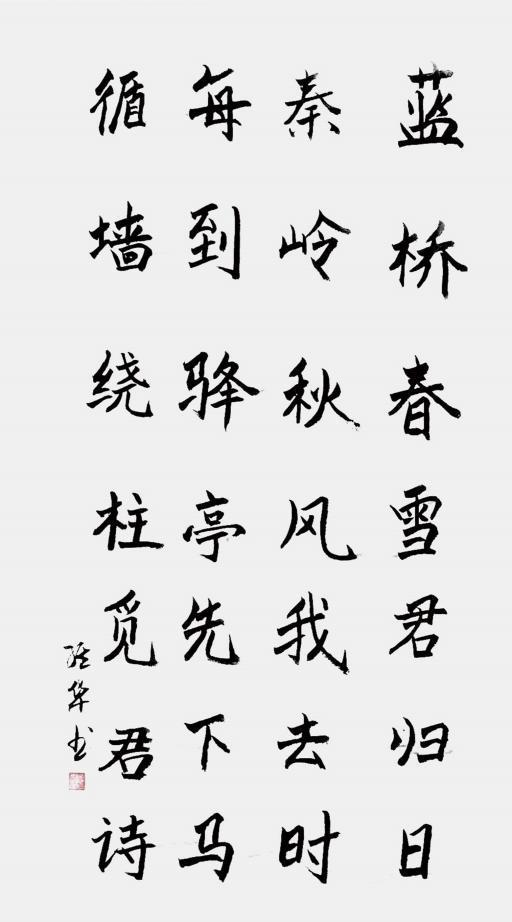 蓝桥春雪君归日
秦岭秋风我去时
每到驿亭先下马
循墙绕柱觅君诗
华书